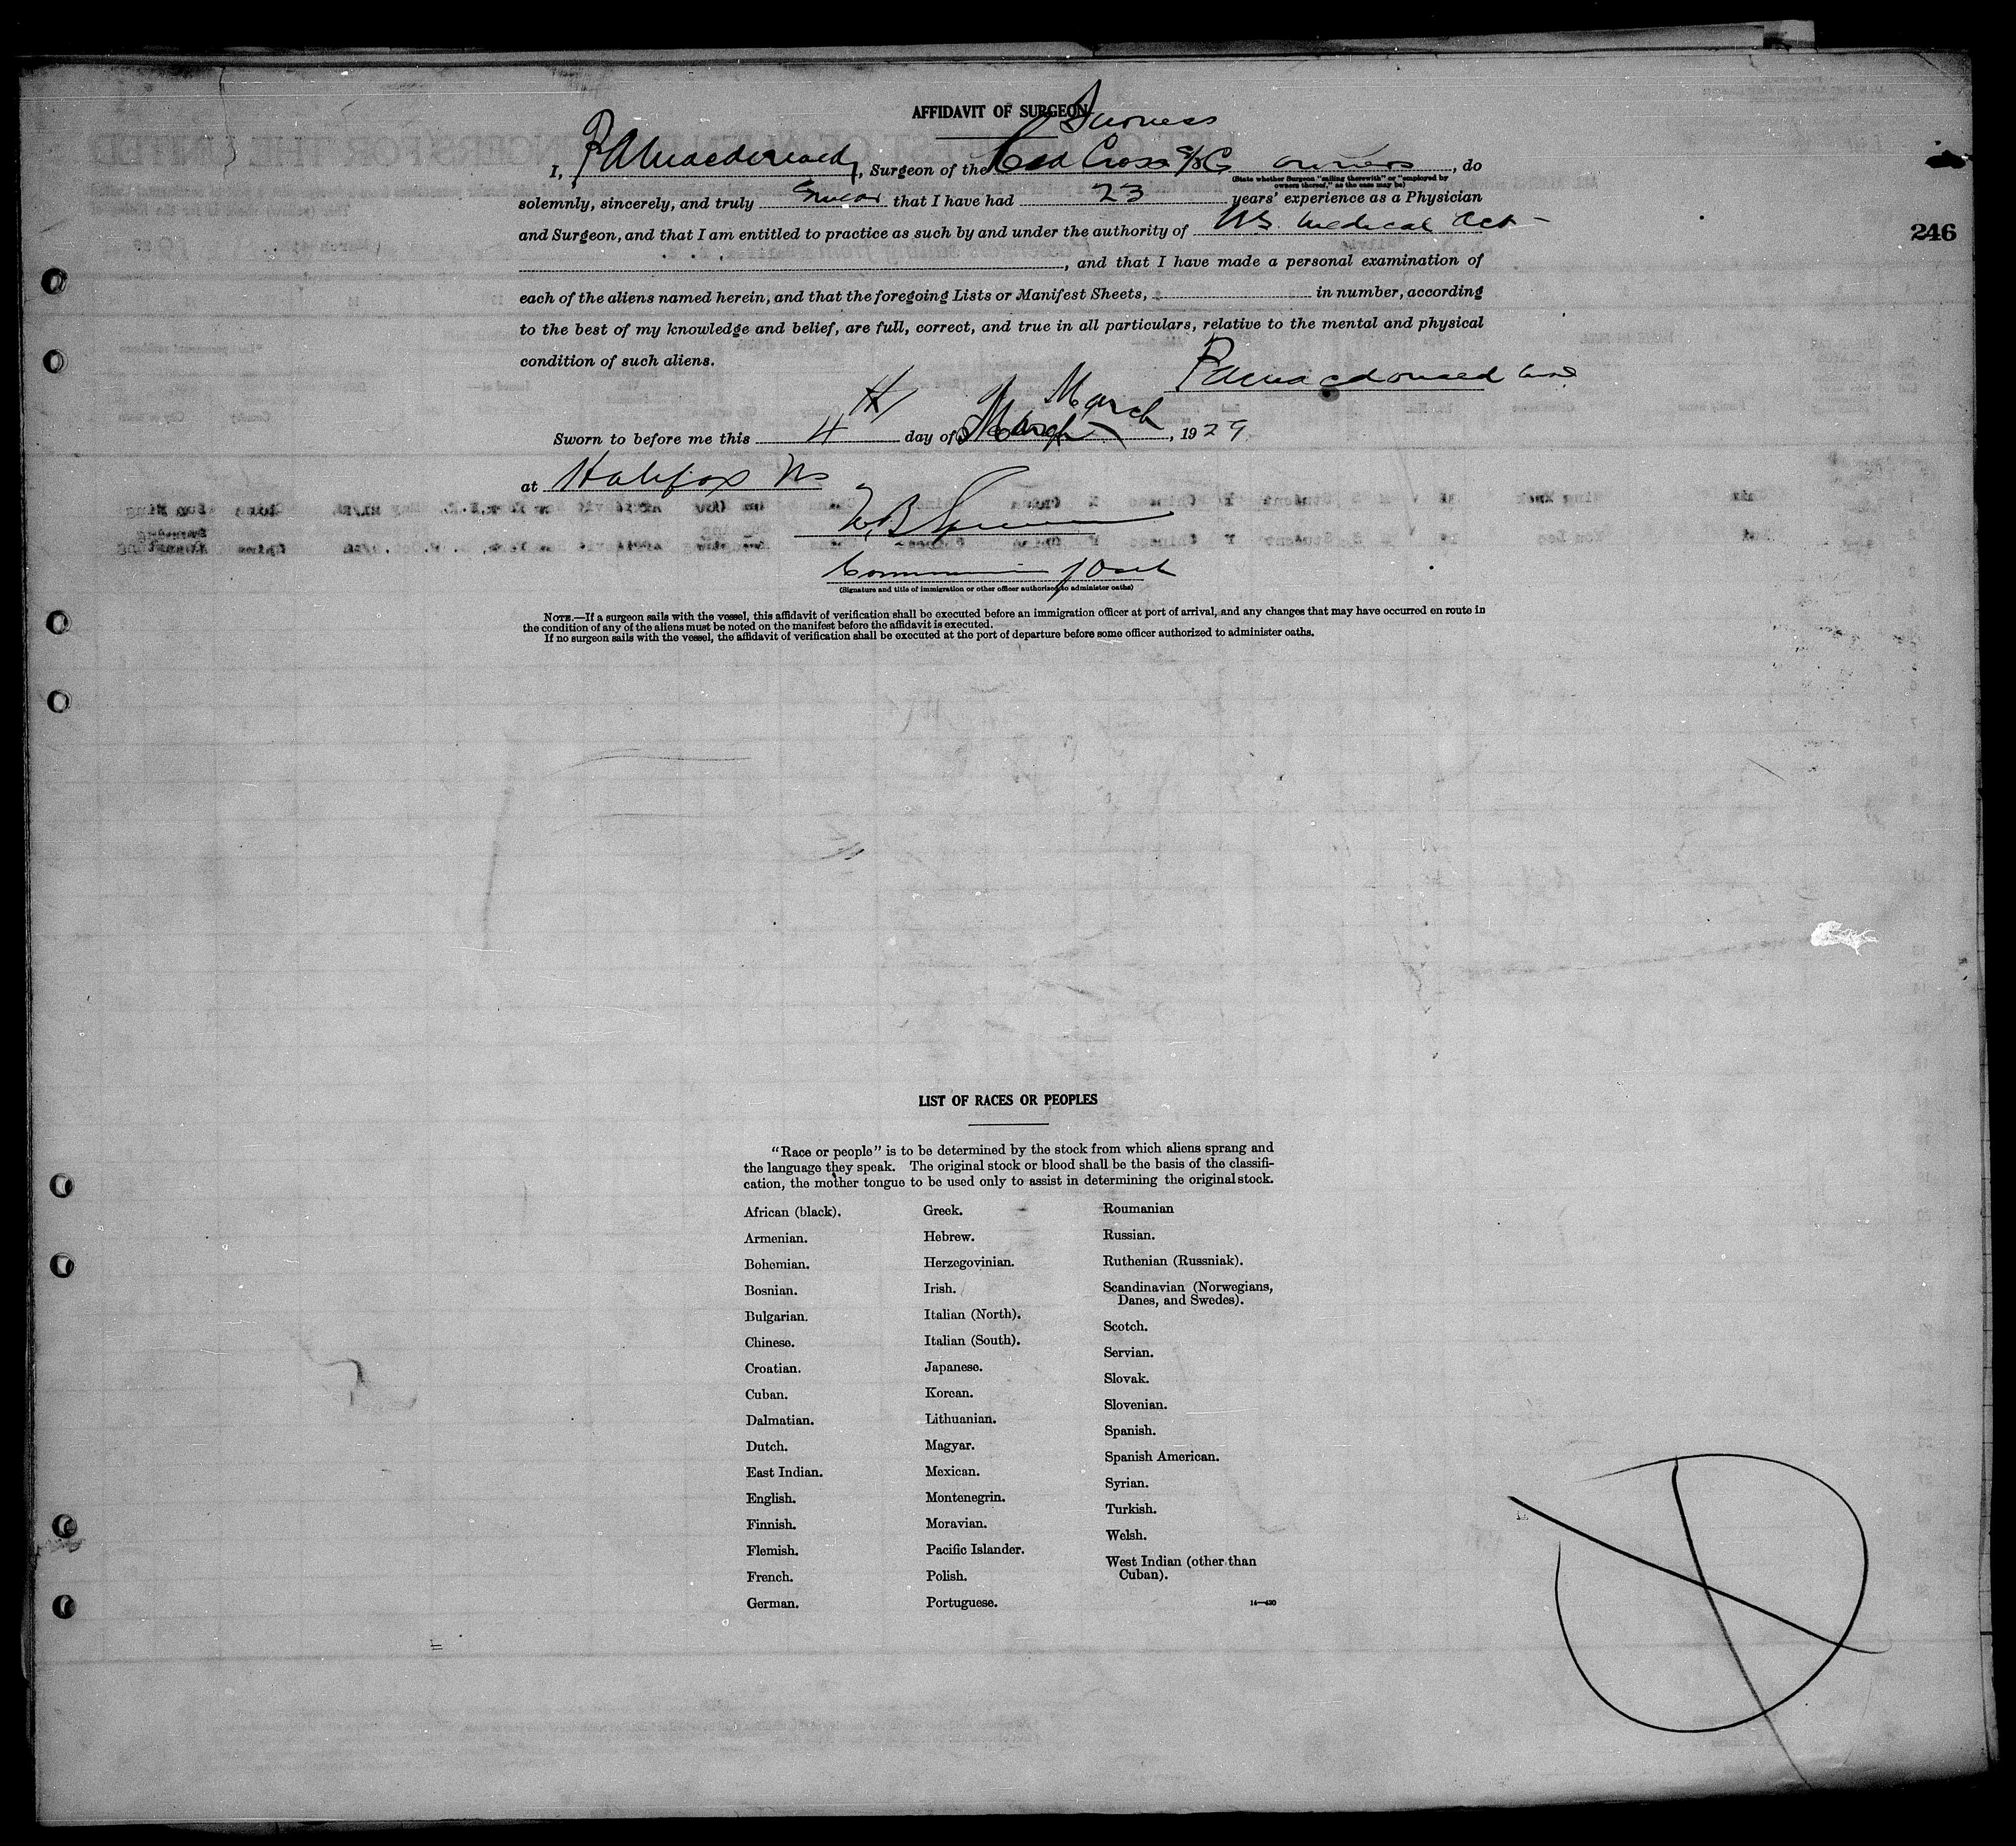 AFFIDAVIT OF SURGEON
I, P A Macdonald, Surgeon of the Red Cross S/S Co owners, do
(State whether Surgeon "sailing therewith" or "employed by
owners thereof," as the case may be)
solemnly, sincerely, and truly swear that I have had 23 years' experience as a Physician
and Surgeon, and that I am entitled to practice as such by and under the authority of NS. Medical Act
246
, and that I have made a personal examination of
each of the aliens named herein, and that the foregoing Lists or Manifest Sheets, in number, according
to the best of my knowledge and belief, are full, correct, and true in all particulars, relative to the mental and physical
condition of such aliens.
P A Macdonald
March
Sworn to before me this 4th day of March, 1929
at Halifax NS
(Signature and title of immigration or other officer authorized to administer oaths)
NOTE.—If a surgeon sails with the vessel, this affidavit of verification shall be executed before an immigration officer at port of arrival, and any changes that may have occurred en route in
the condition of any of the aliens must be noted on the manifest before the affidavit is executed.
If no surgeon sails with the vessel, the affidavit of verification shall be executed at the port of departure before some officer authorized to administer oaths.
LIST OF RACES OR PEOPLES
"Race or people" is to be determined by the stock from which aliens sprang and
the language they speak. The original stock or blood shall be the basis of the classifi-
cation, the mother tongue to be used only to assist in determining the original stock.
African (black).
Armenian.
Bohemian.
Bosnian.
Bulgarian.
Chinese.
Croatian.
Cuban.
Dalmatian.
Dutch.
East Indian.
English.
Finnish.
Flemish.
French.
German.
Greek.
Hebrew.
Herzegovinian.
Irish.
Italian (North).
Italian (South).
Japanese.
Korean.
Lithuanian.
Magyar.
Mexican.
Montenegrin.
Moravian.
Pacific Islander.
Polish.
Portuguese.
Roumanian
Russian.
Ruthenian (Russniak).
Scandinavian (Norwegians,
Danes, and Swedes).
Scotch.
Servian.
Slovak.
Slovenian.
Spanish.
Spanish American.
Syrian.
Turkish.
Welsh.
West Indian (other than
Cuban).
14—430